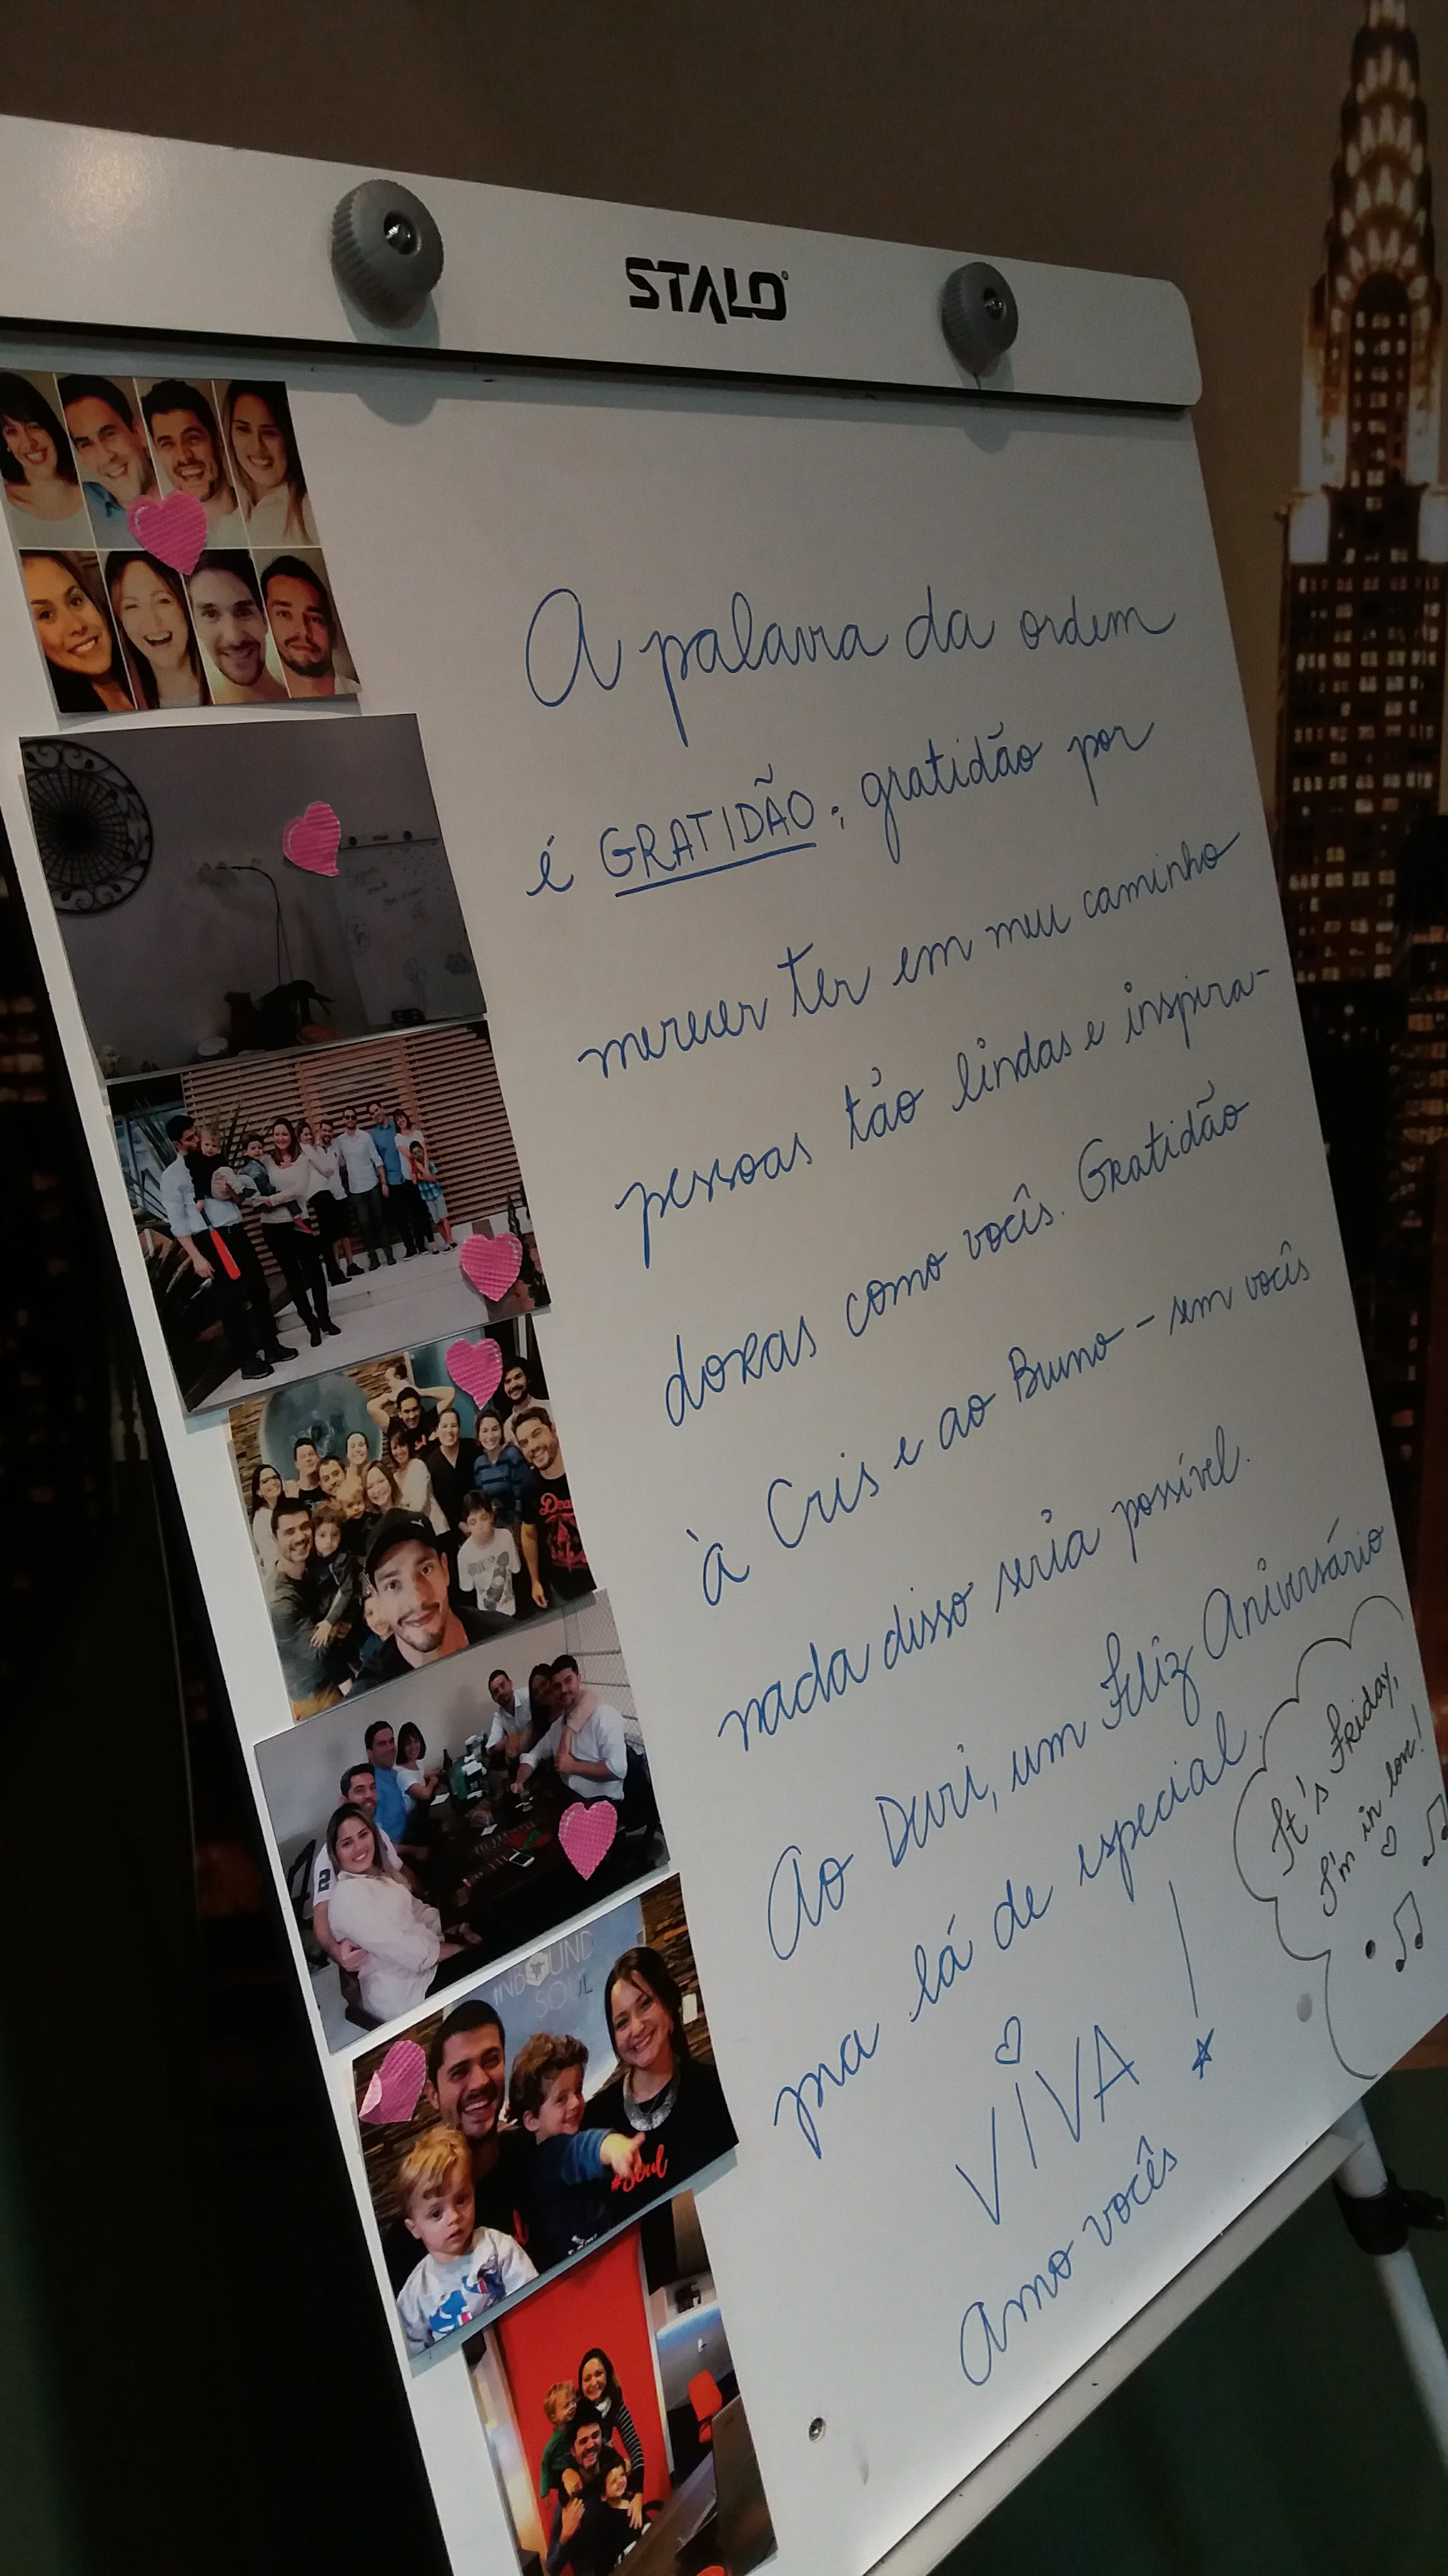 STALO
A palavra da ordem
é GRATIDÃO; gratidão por
merecer ter em meu caminho
pessoas tão lindas e inspira-
doras como vocês. Gratidão
à Cris e ao Bruno - sem vocês
nada disso seria possível.
Ao Duri, um Feliz Aniversário
ma lá de especial.
VIVA!
Amo vocês
It's Friday,
I'm in love!
INBOUND
SOUL
#Soul
2